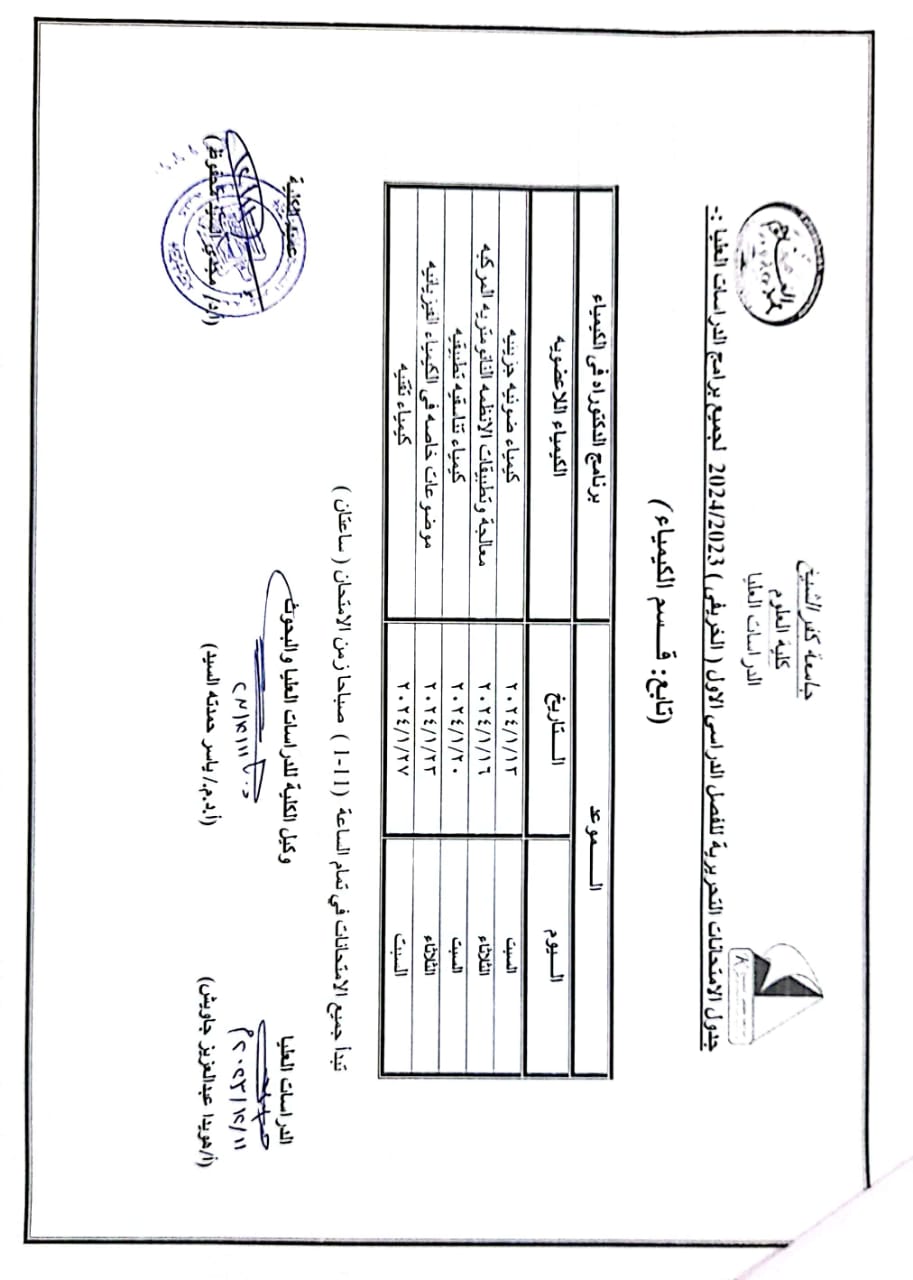 جامعة كفر الشيخ
كلية العلوم
الدراسات العليا
جدول الامتحانات التحريرية للفصل الدراسى الاول ( الخريفى ) 2024/2023 لجميع برامج الدراسات العليا :-
(تابع: قسم الكيمياء )
الموعد برنامج الدكتوراه فى الكيمياء
اليوم التاريخ الكيمياء اللاعضويه
السبت ٢٠٢٤/١/١٣ كيمياء ضوئيه جزيئيه
الثلاثاء ٢٠٢٤/١/١٦ معالجة وتطبيقات الانظمه النانومتريه المركبه
السبت ٢٠٢٤/١/٢٠ كيمياء تناسقيه تطبيقيه
الثلاثاء ٢٠٢٤/١/٢٣ موضوعات خاصه فى الكيمياء الفيزيائيه
السبت ٢٠٢٤/١/٢٧ كيمياء تقنيه
تبدأ جميع الامتحانات في تمام الساعة (11-1 ) صباحا زمن الامتحان ( ساعتان )
الدراسات العليا
٢٠٢٣/١٢/١١م
(أ/هويدا عبدالعزيز جاويش)
وكيل الكلية للدراسات العليا والبحوث
(أ.د.م./ ياسر حمدته السيد)
عميد الكلية
(أ.د/ مجدي السيد محفوظ)